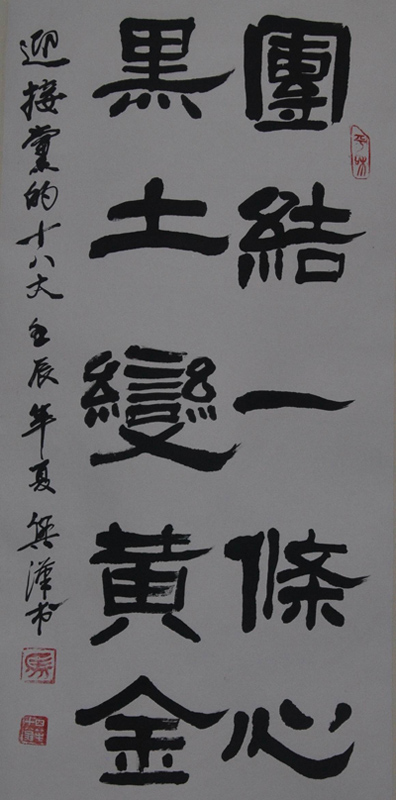 團結一條心
黑土變黄金
迎接黨的十八大 壬辰年夏 漢书